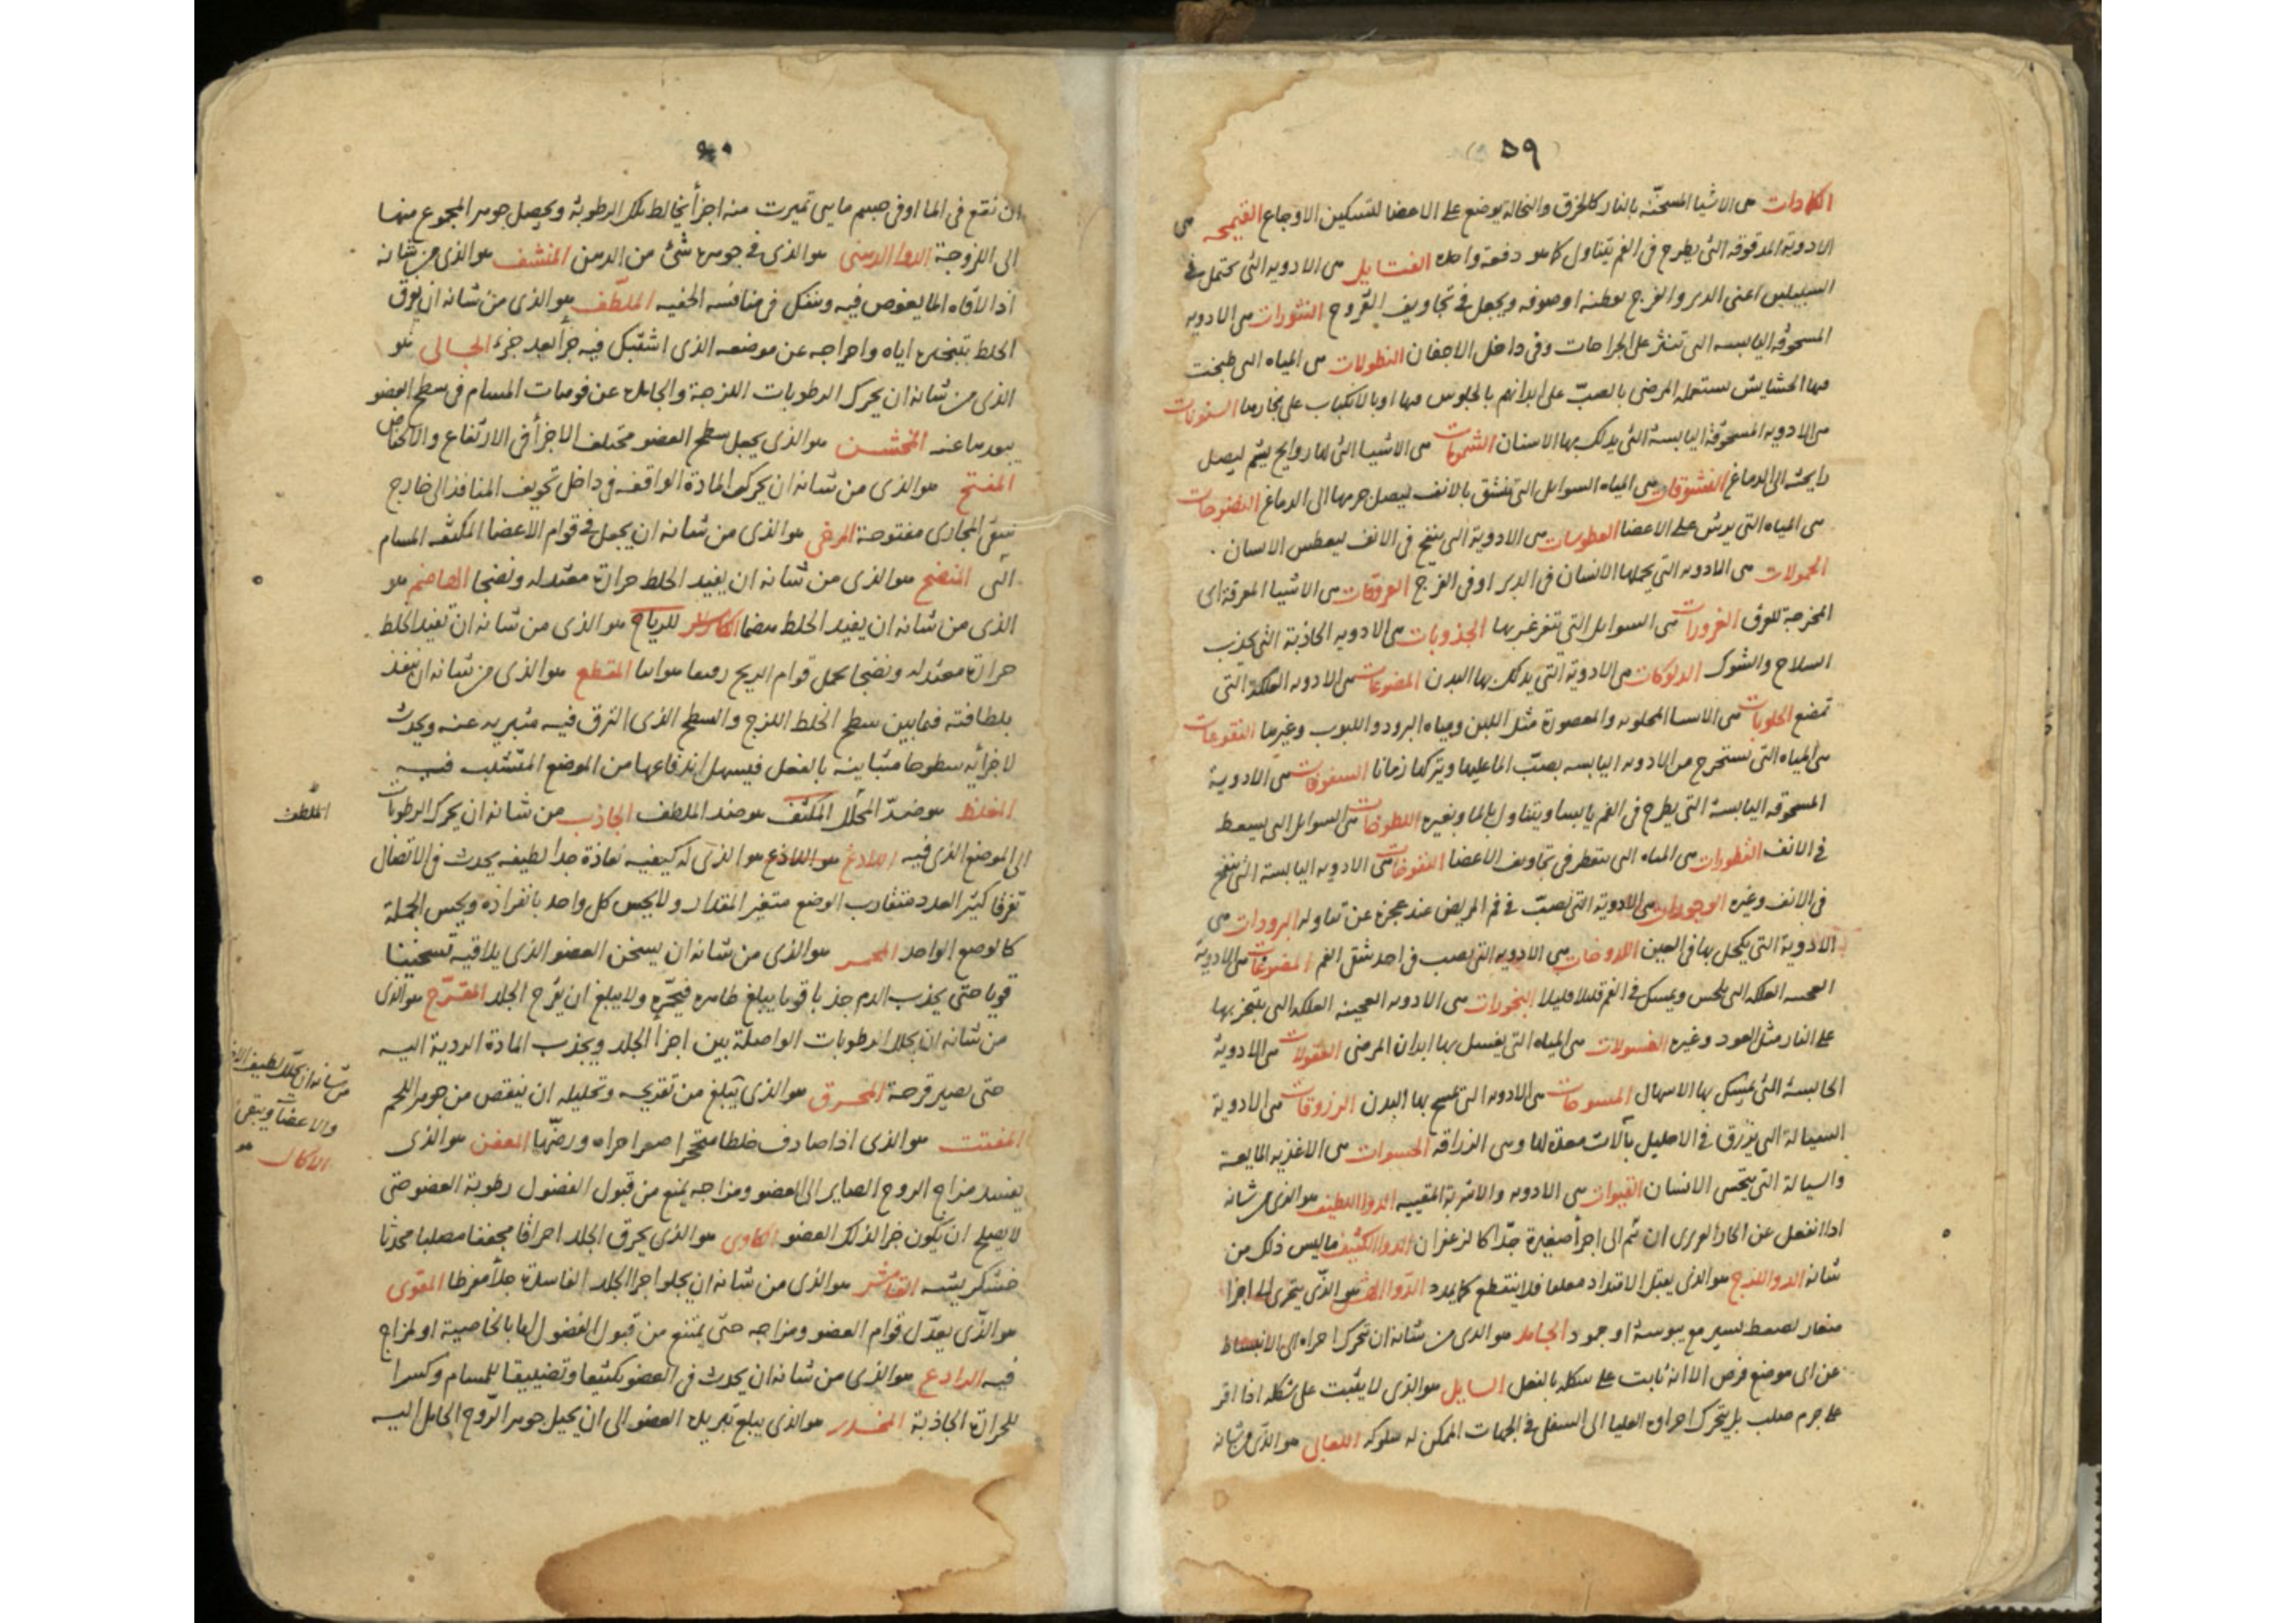 ٥٩
الكمادات هى الاشيا المسخنة بالنار كالخرق والنخالة يوضع على الاعضا لتسكين الاوجاع القميحه هى
الادوية المدقوقة التى يطرح فى الفم يتناول كما هو دفعة واحدة الفتايل هى الادويه التى يحتمل فى
السبيلين اعنى الدبر والفرج بقطنه او صوفه ويجعل فى تجاويف القروح النثورات هى الادويه
المسحوقه اليابسه التى تنثر على الجراحات وفى داخل الاجفان النطولات هى المياه التى طبخت
فيها الحشايش يستعمله المرضى بالصبّ على ابدانهم بالجلوس فيها او بالانكباب على بخارها السنونات
هى الادويه المسحوقة اليابسة التى يدلك بها الاسنان الشمومات هى الاشيا التى لها روايح يشم ليصل
رايحته الى الدماغ النشوقات هى المياه السوايل التى تنشق بالانف ليصل جرمها الى الدماغ النضوحات
هى المياه التى يرش على الاعضا العطوسات هى الادوية التى ينفخ فى الانف ليعطس الانسان .
الحمولات هى الادويه التى يحملها الانسان فى الدبر او فى الفرج العروقات هى الاشيا المعرقة اى
المخرجة للعرق الغرورات هى السوايل التى يتغرغر بها الجذوبات هى الادويه الجاذبة التى يجذب
السلاح والشوك الدلوكات هى الادوية التى يدلك بها البدن المضوغات هى الادويه العلكة التى
تمضغ الحلوبات هى الاسيا المحلوبه والمعصورة مثل اللبن ومياه البرود واللبوب وغيرها النقوعات
هى المياه التى تستخرج من الادويه اليابسه بصبّ الما عليها ويتركها زمانا السفوفات هى الادوية
المسحوقه اليابسة التى يطرح فى الفم يابسا ويتناول بالما وبغيره السعوطات هى السوايل التى يسعط
فى الانف القطورات هى المياه التى يتقطر فى تجاويف الاعضا النفوخات هى الادويه اليابسة التى ينفخ
فى الانف وغيره الوجورات هى الادوية التى تصبّ فى فم المريض عند عجزه عن تناوله البرودات هى
الادوية التى يكحل بها فى العين اللدوخات هى الادويه التى يصب فى احد شقى الفم المضوغات هى الادوية
العلكه التى يلحس ويمسك فى الفم قليلا قليلا البخورات هى الادويه العجينه العلكه التى يتبخر بها
على النار مثل العود وغيره الغسولات هى المياه التى يغسل بها ابدان المرضى العقولات هى الادوية
الحابسة التى يمسك بها الاسهال المسوحات هى الادويه التى يمسح بها البدن الزروقات هى الادوية
السيالة التى يزرق فى الاحليل بآلات معدة لها وهى الزراقه الحسوات هى الاغذيه المايعة
والسيالة التى يتحسى الانسان القيوات هى الادويه والاشربة المقييه الدوا اللطيف هو الذى من شانه
اذا انفعل عن الحار الغريزى ان ينقسم الى اجزأ صغيرة جدّا كالزعفران الدوا الكثيف ما ليس ذلك من
شانه الدوا اللزج هو الذى يقبل الامتداد معلقا فلا ينقطع كما يمدد الدّوا الهش هو الذّى يتجزى الى اجزا
صغار بضغط يسير مع يبوسة او جمود الجامد هو الذى من شانه ان تتحرك اجزاه الى الانبساط
عن اى موضع فرض الا انه ثابت على شكله بالفعل السايل هو الذى لا يثبت على شكله اذا اقر
على جرم صلب بل يتحرك اجزاوه العليا الى السفلى فى الجهات الممكن له سلوكه اللعابى هو الذى من شانه
٩٠
ان نقع فى الما او فى جسم مايى تميزت منه اجزأ يخالط تلك الرطوبة ويحصل جوهر المجموع منها
الى اللزوجة الدوا الدهنى هو الذى فى جوهره شئ من الدهن المنشف هو الذى من شانه
اذا لاقاه الما يغوص فيه وينفكّ فى منافسه الخفيه الملطّف هو الذى من شانه ان يرقق
الخلط بتسخينه اياه واخراجه عن موضعه الذى اشتبك فيه جزأ بعد جزء الجالى هو
الذى من شانه ان يحرك الرطوبات اللزجة والجامدة عن فوهات المسام فى سطح العضو
يبعدها عنه المخشن هو الذى يجعل سطح العضو مختلف الاجزأ فى الارتفاع والانخفاض
المفتح هو الذى من شانه ان يحرك المادة الواقفه فى داخل تجويف المنافذ الى خارج
فتبقى المجارى مفتوحة المرخى هو الذى من شانه ان يجعل فى قوام الاعضا المكثفه المسام
البى المنضج هو الذى من شانه ان يفيد الخلط حرارة معتدله ونضجا الهاضم هو
الذى من شانه ان يفيد الخلط هضما الكاسر للرياح هو الذى من شانه ان تفيد الخلط
حرارة معتدله ونضجا يجعل قوام الريح رقيقا هوائيا المقطع هو الذى من شانه ان ينفذ
بلطافته فيما بين سطح الخلط اللزج والسطح الذى التزق فيه فيبريه عنه ويحدث
لاجزأيه سطوحا متباينه بالفعل فيسهل اندفاعها من الموضع المتشبث فيه
المغلظ هو ضدّ المحلل المكثف هو ضد الملطف الجاذب من شانه ان يحرك الرطوبات
الى الموضع الذى فيه اللادغ هو اللاذع هو الذى له كيفيه نفاذة جدا لطيفه يحدث فى الاتصال
تفرقا كثير العدد متقارب الوضع متغير المقدار ولا يحس كل واحد بانفراده ويحس الجملة
كالوضع الواحد المحمر هو الذى من شانه ان يسخن العضو الذى يلاقيه تسخينا
قويا حتى يجذب الدم جذبا قويا يبلغ ظاهره فيحمّره ولا يبلغ ان يقرح الجلد المقرّح هو الذى
من شانه ان يحلل الرطوبات الواصلة بين اجزأ الجلد ويجذب المادة الردية اليه
حتى يصير قرحة المحرق هو الذى يبلغ من تقريحه وتحليله ان ينقص من جوهر اللحم
المفتت هو الذى اذا صادف خلطا متحجرا صغر اجزاه ورضّها العفن هو الذى
يفسد مزاج الروح الصاير الى العضو ومزاجه يمنع من قبول الفضول رطوبة العضو حتى
لا يصلح ان يكون جزا لذلك العضو الكاوى هو الذى يحرق الجلد احراقا مجففا مصلبا محدثا
خشكريشه القاشر هو الذى من شانه ان يجلو اجزا الجلد الفاسدة جلأ مفرطا المقوى
هو الذّى يعدّل قوام العضو ومزاجه حتى يمتنع من قبول الفضول لها بالخاصية او لمزاج
فيه الرادع هو الذى من شانه ان يحدث فى العضو تكثيفا وتضييقا للمسام وكسرا
للحرارة الجاذبة المخدر هو الذى يبلغ تبريده العضو الى ان يحيل جوهر الرّوح الحامل اليه
الملطف
من شانه ان يحلل لطيف
والاعضآ ويبقى
الاكال هو